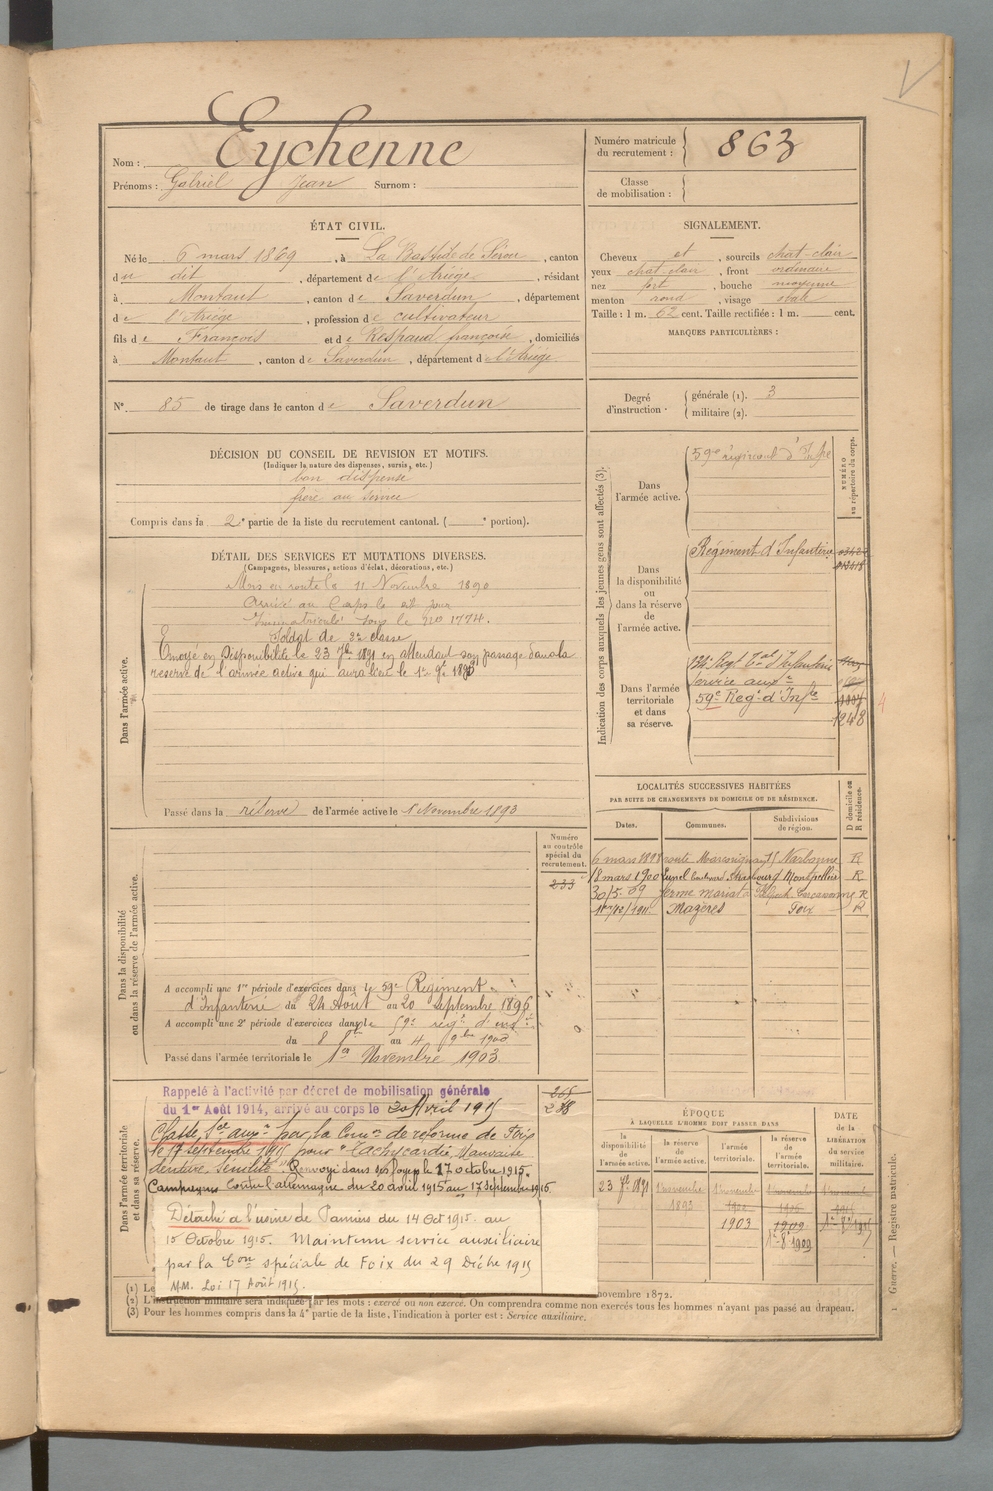 Nom : Eychenne
Prénoms : Gabriel Jean Surnom :
Numéro matricule du recrutement : 863
Classe de mobilisation :
ÉTAT CIVIL.
Né le 6 mars 1869, à La Bastide de Sérou, canton
du dit, département de l'Ariège, résidant
à Montaut, canton de Saverdun, département
de l'Ariège, profession de cultivateur
fils de François et de Respaud françoise, domiciliés
à Montaut, canton de Saverdun, département de l'Ariège.
N° 85 de tirage dans le canton de Saverdun
SIGNALEMENT.
Cheveux et, sourcils chat-clair
yeux chat-clair, front ordinaire
nez fort, bouche moyenne
menton rond, visage ovale
Taille : 1 m. 62 cent. Taille rectifiée : 1 m. cent.
MARQUES PARTICULIÈRES :
Degré d'instruction. générale (1). 3
militaire (2).
DÉCISION DU CONSEIL DE REVISION ET MOTIFS.
(Indiquer la nature des dispenses, sursis, etc.)
bon dispensé
frère au service
Compris dans la 2e partie de la liste du recrutement cantonal. ( e portion).
DÉTAIL DES SERVICES ET MUTATIONS DIVERSES.
(Campagnes, blessures, actions d'éclat, décorations, etc.)
Dans l'armée active.
Mis en route le 11 Novembre 1890
Arrivé au Corps le dit jour
Immatriculé sous le no 1774.
Soldat de 2e classe
Envoyé en Disponibilité le 23 7bre 1891 en attendant son passage dans la
réserve de l'armée active qui aura lieu le 1er 9bre 1893
Passé dans la réserve de l'armée active le 1 Novembre 1893
Dans la disponibilité ou dans la réserve de l'armée active.
Numéro au contrôle spécial du recrutement.
233
A accompli une 1re période d'exercices dans le 59e Régiment
d'Infanterie du 24 Août au 20 Septembre 1896
A accompli une 2e période d'exercices dans le 59e régt d'infie
du 8 8bre au 4 9bre 1900
Passé dans l'armée territoriale le 1er Novembre 1903
Dans l'armée territoriale et dans sa réserve.
265
238
Rappelé à l'activité par décret de mobilisation générale
du 1er Août 1914, arrivé au corps le 20 Avril 1915
Classé Sce auxre par la Comon de réforme de Foix
le 17 septembre 1915 pour "Tachycardie, Mauvaise
denture, sénilité". Renvoyé dans ses foyers le 17 octobre 1915.
Campagnes Contre l'allemagne du 20 avril 1915 au 17 septembre 1915
Détaché à l'usine de Pamiers du 14 Oct 1915 au
15 Octobre 1915. Maintenu service auxiliaire
par la Con spéciale de Foix du 29 Décbre 1915
MM. Loi 17 Août 1915.
Indication des corps auxquels les jeunes gens sont affectés (3).
NUMÉRO au répertoire du corps.
Dans l'armée active.
59e régiment d'Infie
Dans la disponibilité ou dans la réserve de l'armée active.
Régiment d'Infanterie
Dans l'armée territoriale et dans sa réserve.
134e Regt Tal d'Infanterie
Service auxre
59e Regt d'Infie
1248
4
LOCALITÉS SUCCESSIVES HABITÉES
PAR SUITE DE CHANGEMENTS DE DOMICILE OU DE RÉSIDENCE.
Dates. Communes. Subdivisions de région. D domicile ou R résidence.
Narbonne R
18 mars 1900 Lunel boulevard Strasbourg Montpellier R
30/5. 09 ferme Carcassonne R
Mazères Foix R
ÉPOQUE
À LAQUELLE L'HOMME DOIT PASSER DANS
la disponibilité de l'armée active. la réserve de l'armée active. l'armée territoriale. la réserve de l'armée territoriale.
DATE de la LIBÉRATION du service militaire.
23 7bre 1891 1 novembre 1893 1 novembre 1903
1909
(1) Le novembre 1872.
(2) L'instruction militaire sera indiquée par les mots : exercé ou non exercé. On comprendra comme non exercés tous les hommes n'ayant pas passé au drapeau.
(3) Pour les hommes compris dans la 4e partie de la liste, l'indication à porter est : Service auxiliaire.
1 Guerre. — Registre matricule.